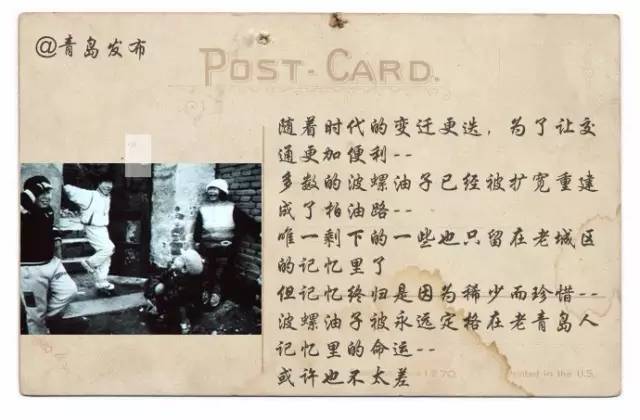 @青岛发布
POST-CARD.
随着时代的变迁更迭，为了让交
通更加便利--
多数的波螺油子已经被扩宽重建
成了柏油路--
唯一剩下的一些也只留在老城区
的记忆里了
但记忆终归是因为稀少而珍惜--
波螺油子被永远定格在老青岛人
记忆里的命运--
或许也不太差
1870
Printed in the U.S.